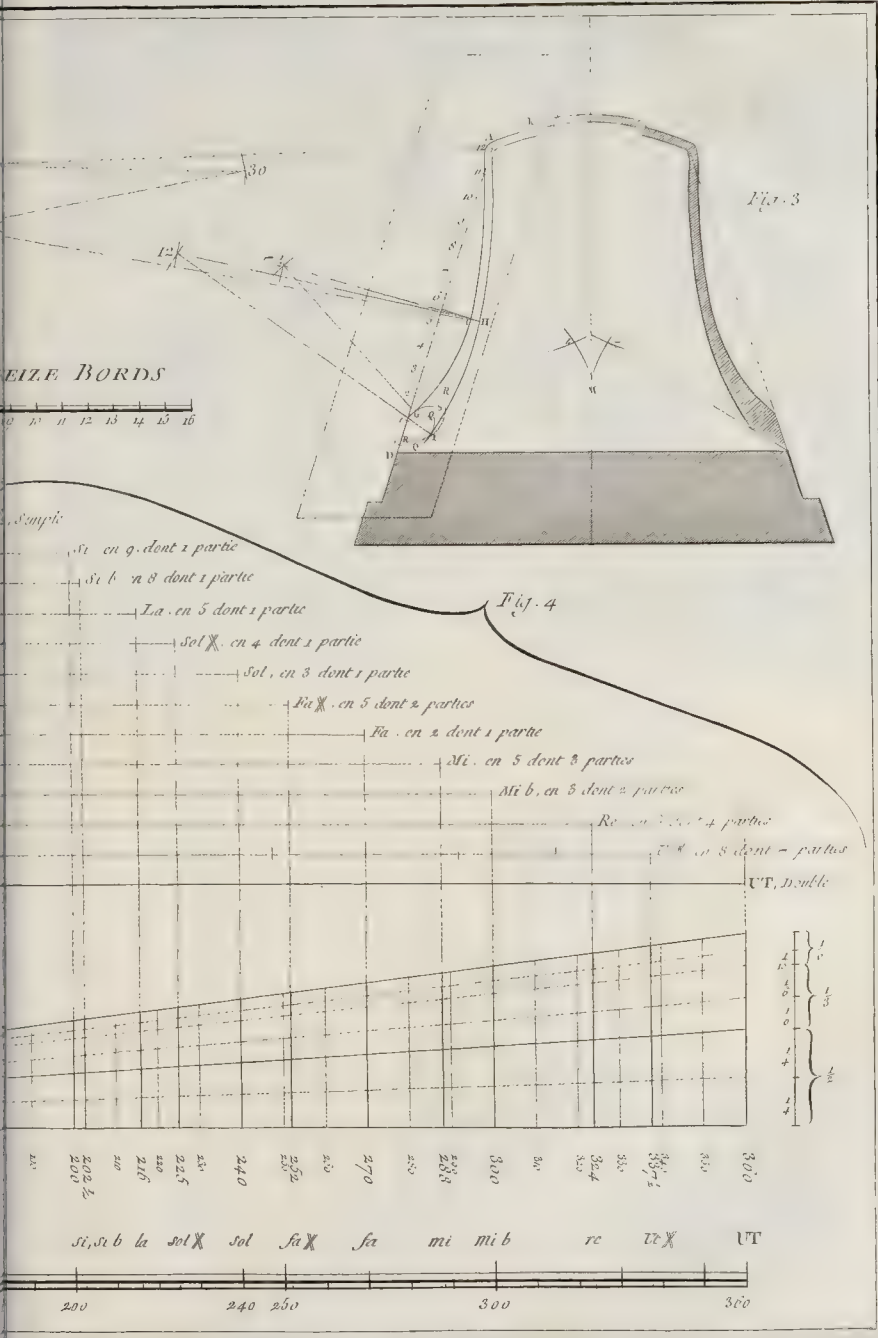 Fig. 3
30
12
A
12
11
10
9
8
6
5
4
3
2
H
R
Q
D
EIZE BORDS
9 10 11 12 13 14 15 16
Simple
Si en 9. dont 1 partie
Si b n 8 dont 1 partie
La. en 5 dont 1 partie
Fig. 4
Sol X. en 4 dont 1 partie
Sol. en 3 dont 1 partie
Fa X. en 5 dont 2 parties
Fa. en 2 dont 1 partie
Mi. en 5 dont 3 parties
Mi b. en 3 dont 2 parties
Re 4 parties
en 8 dont parties
UT, Double
1/3
1/4
1/2
1/4
200 202 1/2 210 216 220 225 230 240 252 270 288 300 310 320 324 330 337 1/2 350
si, si b la sol X sol fa X fa mi mi b re Ut X UT
200 240 250 300 360